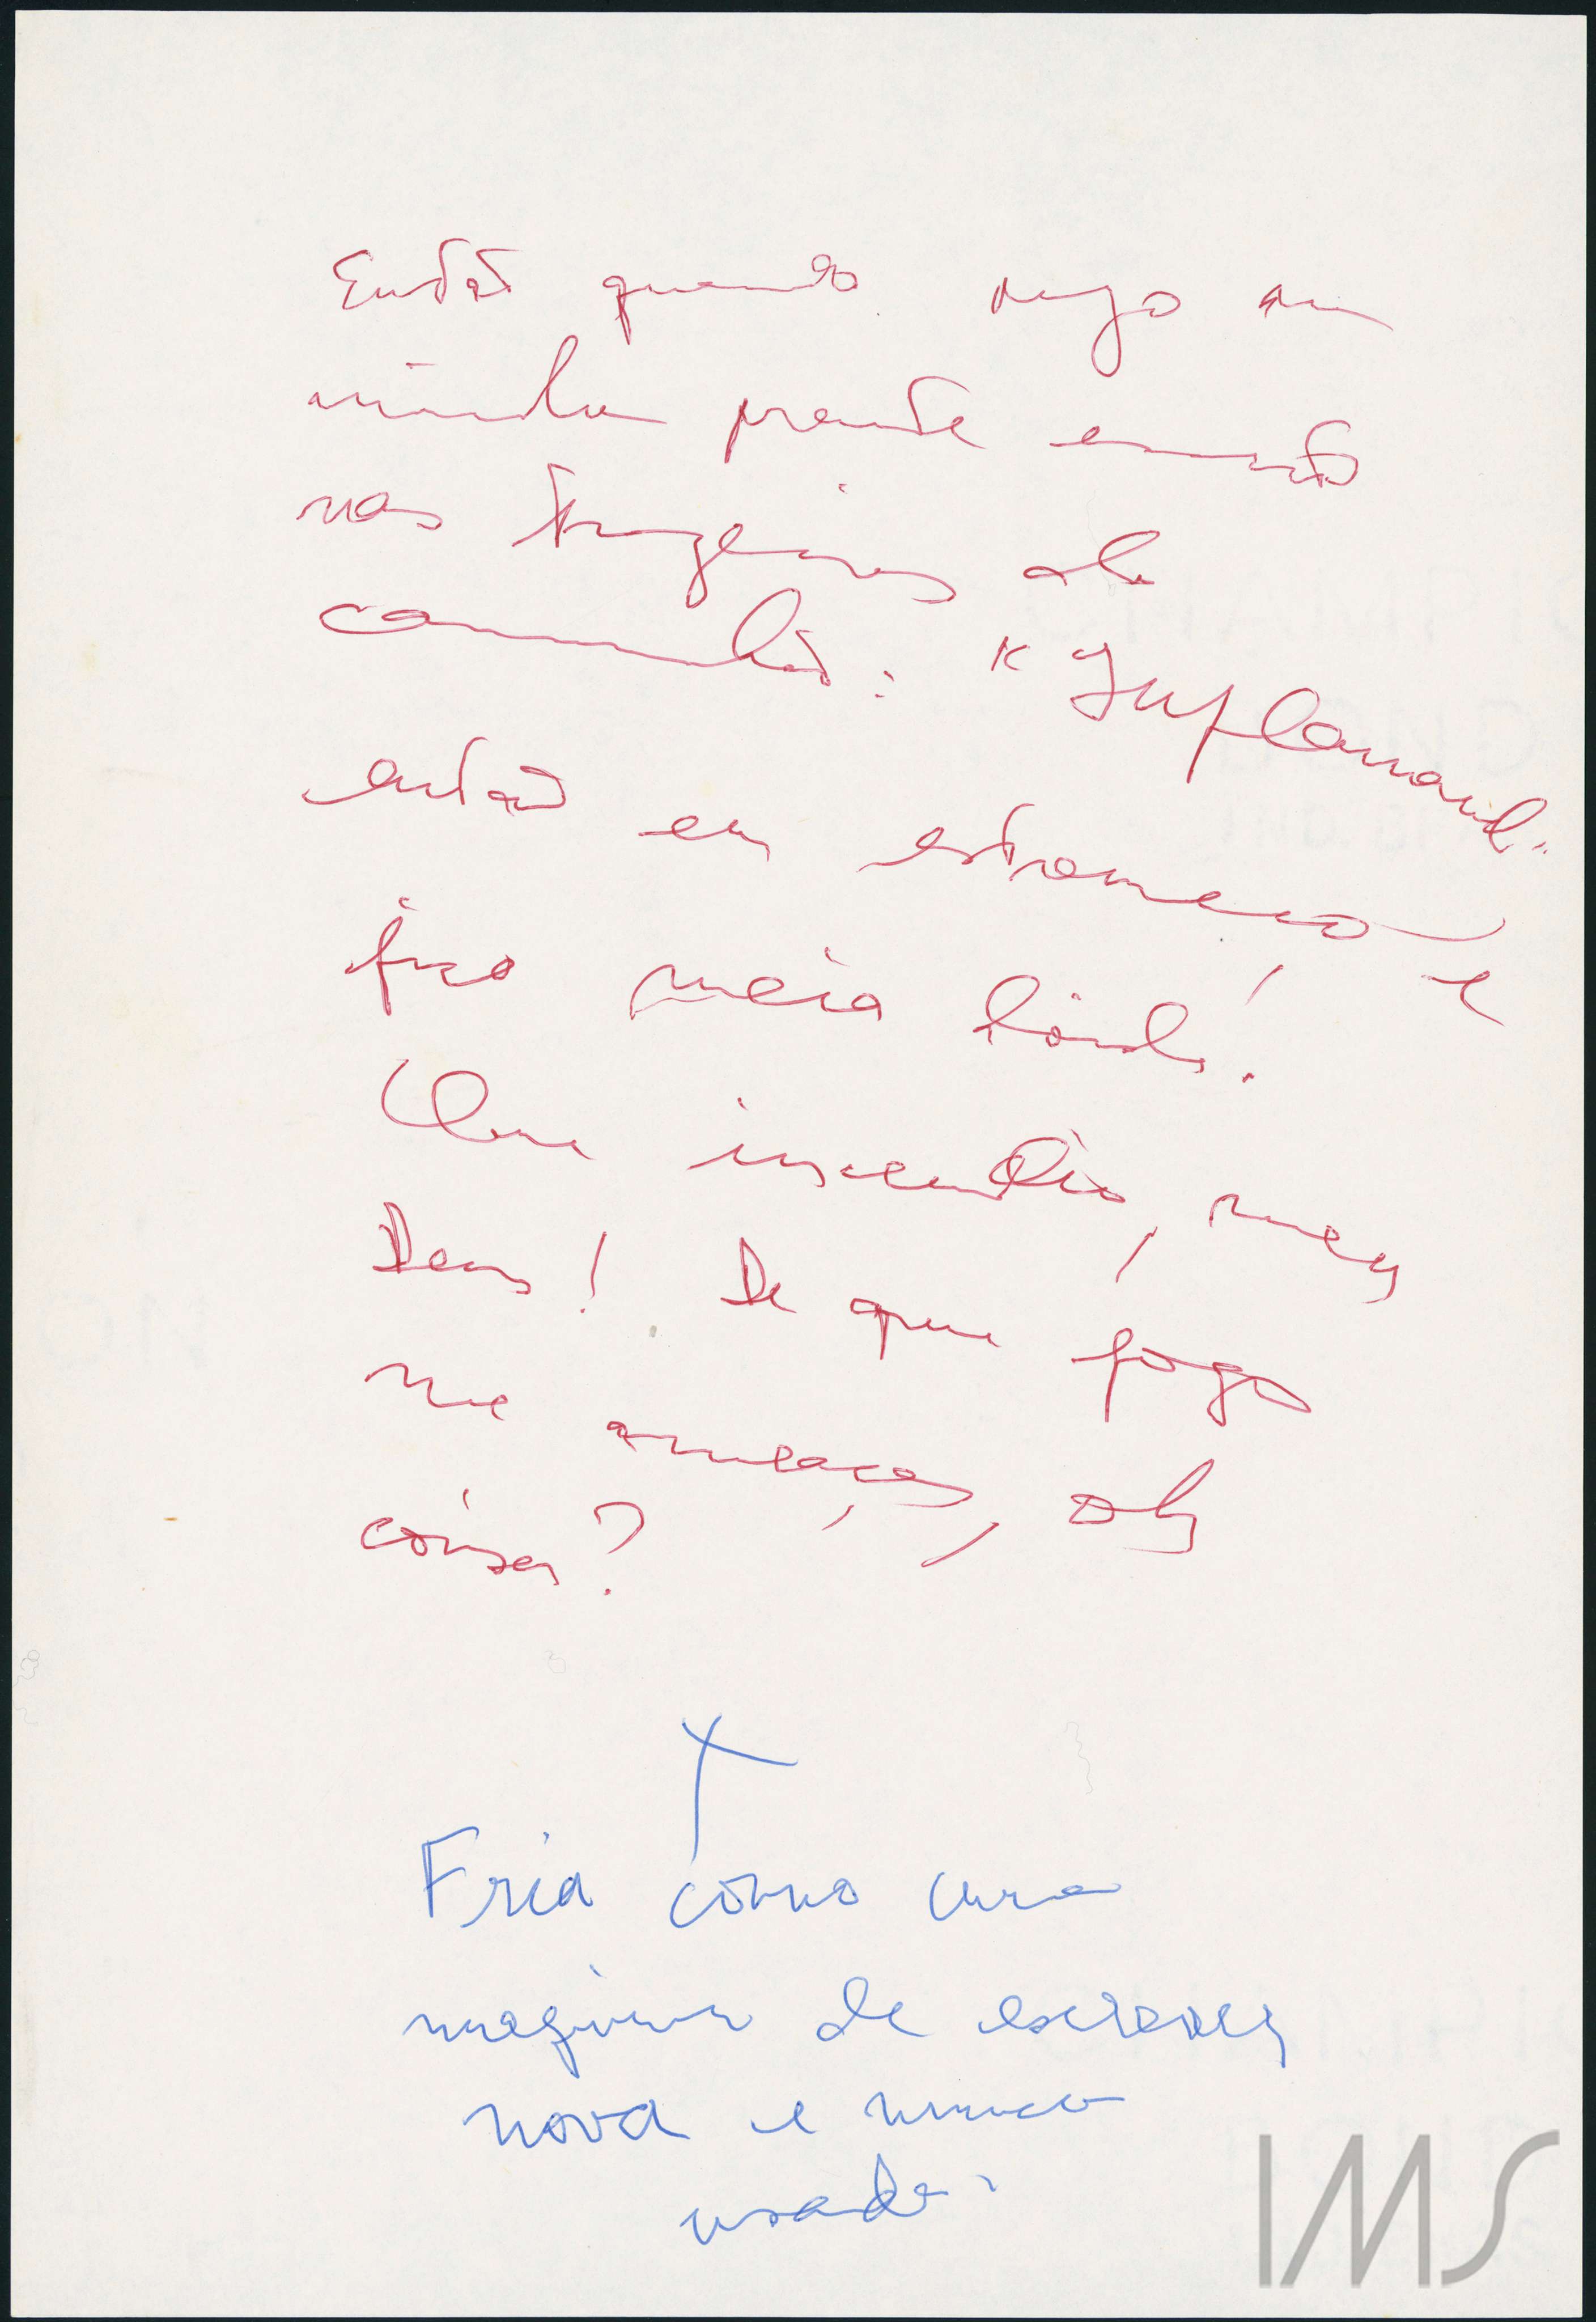 Então quando vejo na
minha frente escrito
nas traseiras de
caminhão: "Inflamável"
então eu estremeço e
fico meia
Que incendio, meu
Deus! De que fogo
me ameaças, oh
coisa?
Fria como uma
máquina de escrever
nova e nunca
usada.
IMS